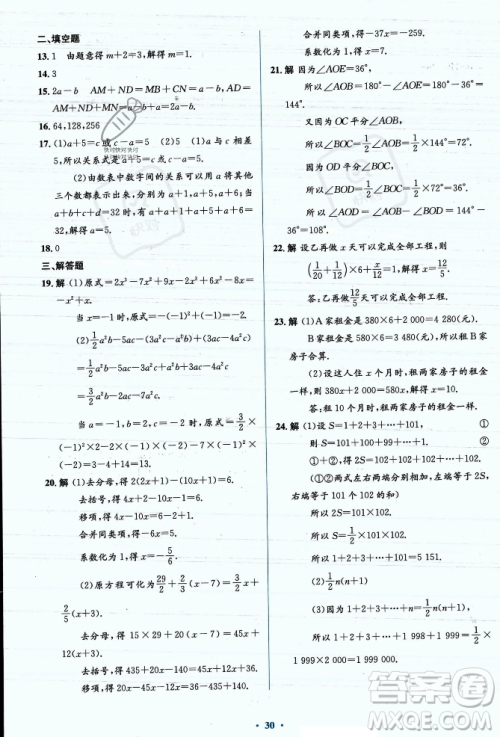 二、填空题
13. 1 由题意得 m+2=3,解得 m=1.
14. 3
15. 2a-b AM+ND=MB+CN=a-b,AD=
AM+ND+MN=a-b+a=2a-b.
16. 64,128,256
17. (1)a+5=c 或 c-a=5 (2)5 (1)a 与 c 相差
5,所以关系式是 a+5=c 或 c-a=5.
(2)由数表中数字间的关系可以用 a 将其他
三个数都表示出来,分别为 a+1,a+5,a+6;当
a+b+c+d=32 时,有 a+a+1+a+5+a+6
=32,解得 a=5.
18. 0
三、解答题
19. 解 (1)原式=2x³-7x²-9x-2x³+6x²+8x=
-x²-x.
当 x=-1 时,原式=-1+1=0.
(2)½a²b-5ac-(3a²c-a²b)+(3ac-4a²c)
=½a²b-5ac-3a²c+a²b+3ac-4a²c
=3/2a²b-2ac-7a²c.
当 a=-1,b=2,c=-2 时,原式=3/2×
(-1)²×2-2×(-1)×(-2)-7×
(-1)²×(-2)=3-4+14=13.
20. 解 (1)去分母,得 2(2x-1)-(10x+1)=6.
去括号,得 4x-2-10x-1=6.
移项,得 4x-10x=6+2+1.
合并同类项,得 -6x=9.
(2)原方程可化为 29/2+2/3(x-7)=3/2x+
2/5(x+3).
去分母,得 15×29+20(x-7)=45x+
12(x+3).
去括号,得 435+20x-140=45x+12x+36.
移项,得 20x-45x-12x=36-435+140.
合并同类项,得 -37x=-259.
系数化为 1,得 x=7.
21. 解 因为∠AOE=36°,
所以∠AOC=180°-∠AOE=180°-36°=
144°.
又因为 OC 平分∠AOB,
所以∠BOC=½∠AOC=½×144°=72°.
因为 OD 平分∠BOC,
所以∠BOD=½∠BOC=½×72°=36°.
所以∠AOD=∠AOB-∠BOD=72°-36°=36°.
22. 解 设乙再做 x 天可以完成全部工程,
则(1/20+1/12)×6+x/12=1,解得 x=12/5.
答:乙再做 12/5 天可以完成全部工程.
23. 解 (1)A 家租金是 380×6+2 000=4 280(元).
B 家租金是 580×6=3 480(元),所以租 B 家
房子合算.
(2)设这人住 x 个月时,租两家房子的租金一样,
则 380x+2 000=580x,解得 x=10.
答:租 10 个月时,租两家房子的租金一样.
24. 解 (1)S=1+2+…+101, ①
则 S=101+…+2+1. ②
①+②(两式左右分别相加,左端等于 2S,
右端等于 101 个 102 的和)
可以得到 2S=101×102.
所以 S=½×101×102=5 151.
所以 1+2+3+…+101=5 151.
(2)½n(n+1)
(3)因为 1+2+3+…+n=½n(n+1),
所以 1+2+3+…+1 999=½×1 999×
(1 999+1)=1 999 000.
30
答案圈